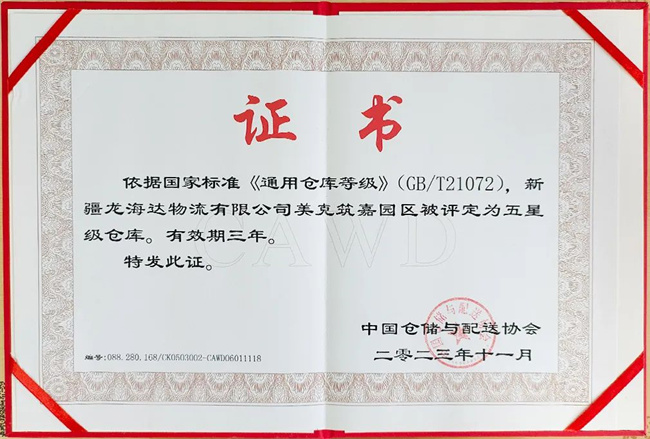 证 书
依据国家标准《通用仓库等级》(GB/T21072)，新
疆龙海达物流有限公司美克筑嘉园区被评定为五星
级仓库。有效期三年。
特发此证。
CAWD
中国仓储与配送协会
二零二三年十一月
编号:088.280.168/CK0503002-CAWD06011118